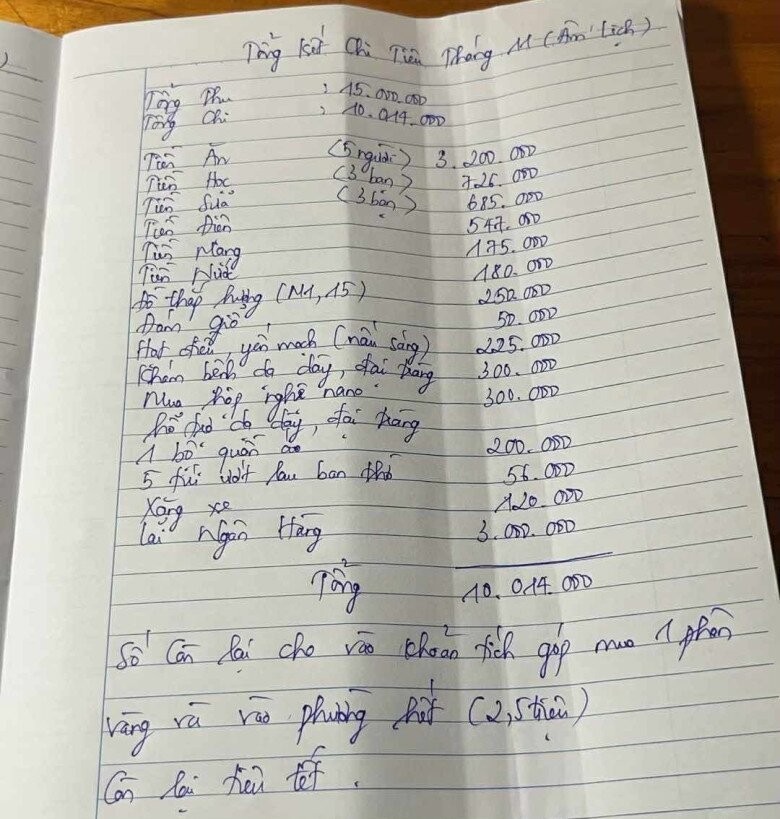 Tổng Kết Chi Tiêu Tháng 11 (Âm Lịch)
Tổng Thu : 15.000.000
Tổng Chi : 10.014.000
Tiền Ăn (5 người) 3.200.000
Tiền Học (3 bạn) 726.000
Tiền Sữa (3 bạn) 685.000
Tiền Điện 547.000
Tiền Mạng 175.000
Tiền Nước 180.000
Đồ thắp hương (M1, 15) 250.000
Đám giỗ 50.000
Hạt điều, yến mạch (nấu sáng) 225.000
Khám bệnh dạ dày, đại tràng 300.000
Mua hộp nghệ nano 300.000
hỗ trợ dạ dày, đại tràng
1 bộ quần áo 200.000
5 túi ướt lau ban thờ 56.000
Xăng xe 120.000
Lãi Ngân Hàng 3.000.000
Tổng 10.014.000
Số Còn lại cho vào khoản tích góp mua 1 phân
vàng rà vào phường hết (2,5 triệu)
Còn lại tiêu tết.